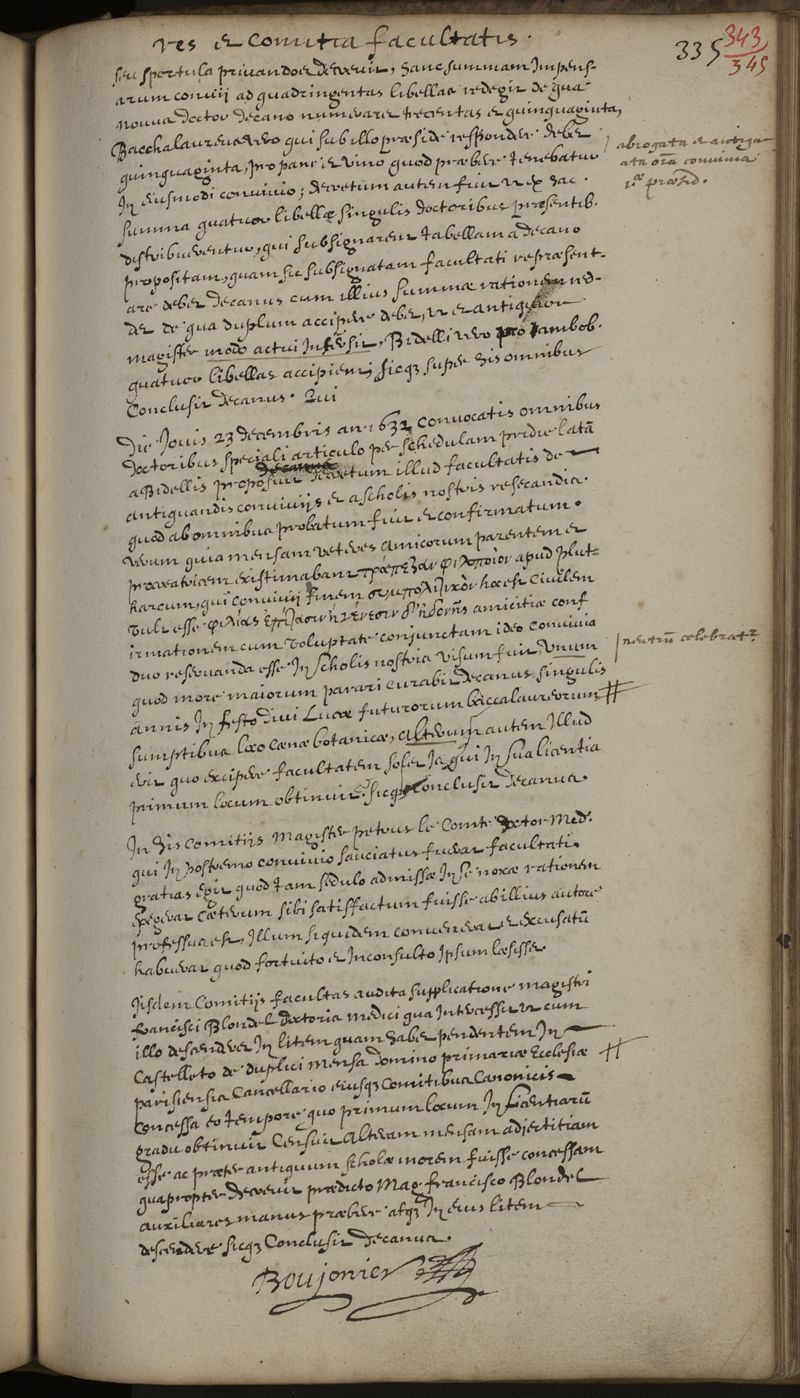 res et Comitia facultatis.
335 343
345
seu sportula privandos decrevit, hanc summam Impens-
arum convivij ad quadringentas libellas redegit de qua
nouus doctor decano numerare trecentas et quinquaginta,
Bacchalaureus vero qui sub illo præside respondere debet
quinquaginta, pro pane et vino quod præbere tenebatur
In eiusmodi convivio; decretum autem fuit ut ex hac
summa quatuor libellæ singulis doctoribus præsentib.
distribuerentur, qui subsignarent tabellam a decano
propositam, quam sic subsignatam facultati repræsent-
are debet decanus cum illius summæ rationem red-
det de qua duplum accipere debet, ut et antiquior
magister modo actui Interfit, Bidelli vero pro ambob.
quatuor libellas accipient, sicq; super his omnibus
Conclusit decanus. Qui
abrogata et antiqu-
ata oīa convivia
Die Jovis 23 decembris an. 1632 convocatis omnibus
doctoribus speciali articulo per schedulam pridie latā
a Bidellis proposuit decretum illud facultatis de
antiquandis convivijs et a scholis nostris resecandis.
quod ab omnibus probatum fuit et confirmatum.
Verum quia mensam veteres amicorum parentem et
procreatricem existimabant τράπεζαν φιλοποιὸν apud plut-
harcum, qui convivij finem συμπολιτικὸν hoc est civilem
vult esse φιλίας ἐπίτασιν ἢ γένεσιν δι' ἡδονῆς amicitiæ conf
irmationem cum voluptate conjunctam ideo convivia
duo reservanda esse In scholis nostris visum fuit, Vnum
quod more maiorum parari curabit decanus singulis
annis In festo divi Lucæ futurorum baccalaureorum #
sumptibus loco cænæ botanicæ, alterum autem Illud
erit quo excipere facultatem solet Is qui In sua licentia
primum locum obtinuit. sicq; Conclusit decanus.
neutrū celebrat.
In his Comitijs Magister petrus le Comte doctor Med.
qui In postremo convivio sauciatus fuerat facultati
gratias egit quod tam sedulo admissæ In se noxæ rationem
exegerat cæterum sibi satisfactum fuisse ab illius autore
professus est, Illum siquidem convenerat et excusatū
habuerat quod fortuito et Inconsulto Ipsum læsisset.
Iisdem Comitijs facultas audita supplicatione magistri
francisci Blondel doctoris medici qua Intercessit ut cum
illo descenderet In litem quam habet pendentem In
Castelleto de duplici mensa domino primariæ Ecclesiæ #
parisiensis Cancellario eiusq; comitibus Canonicis
concessa eo tempore quo primum locum In Licentiarū
gradu obtinuit Censuit Alteram mensam adjectitiam
esse ac præter antiquum scholæ morem fuisse concessam
quapropter decrevit prædicto Mag. francisco Blondel
auxiliares manus præbere atq; In eius litem
descendere sicq; Conclusit decanus.
Boujonier